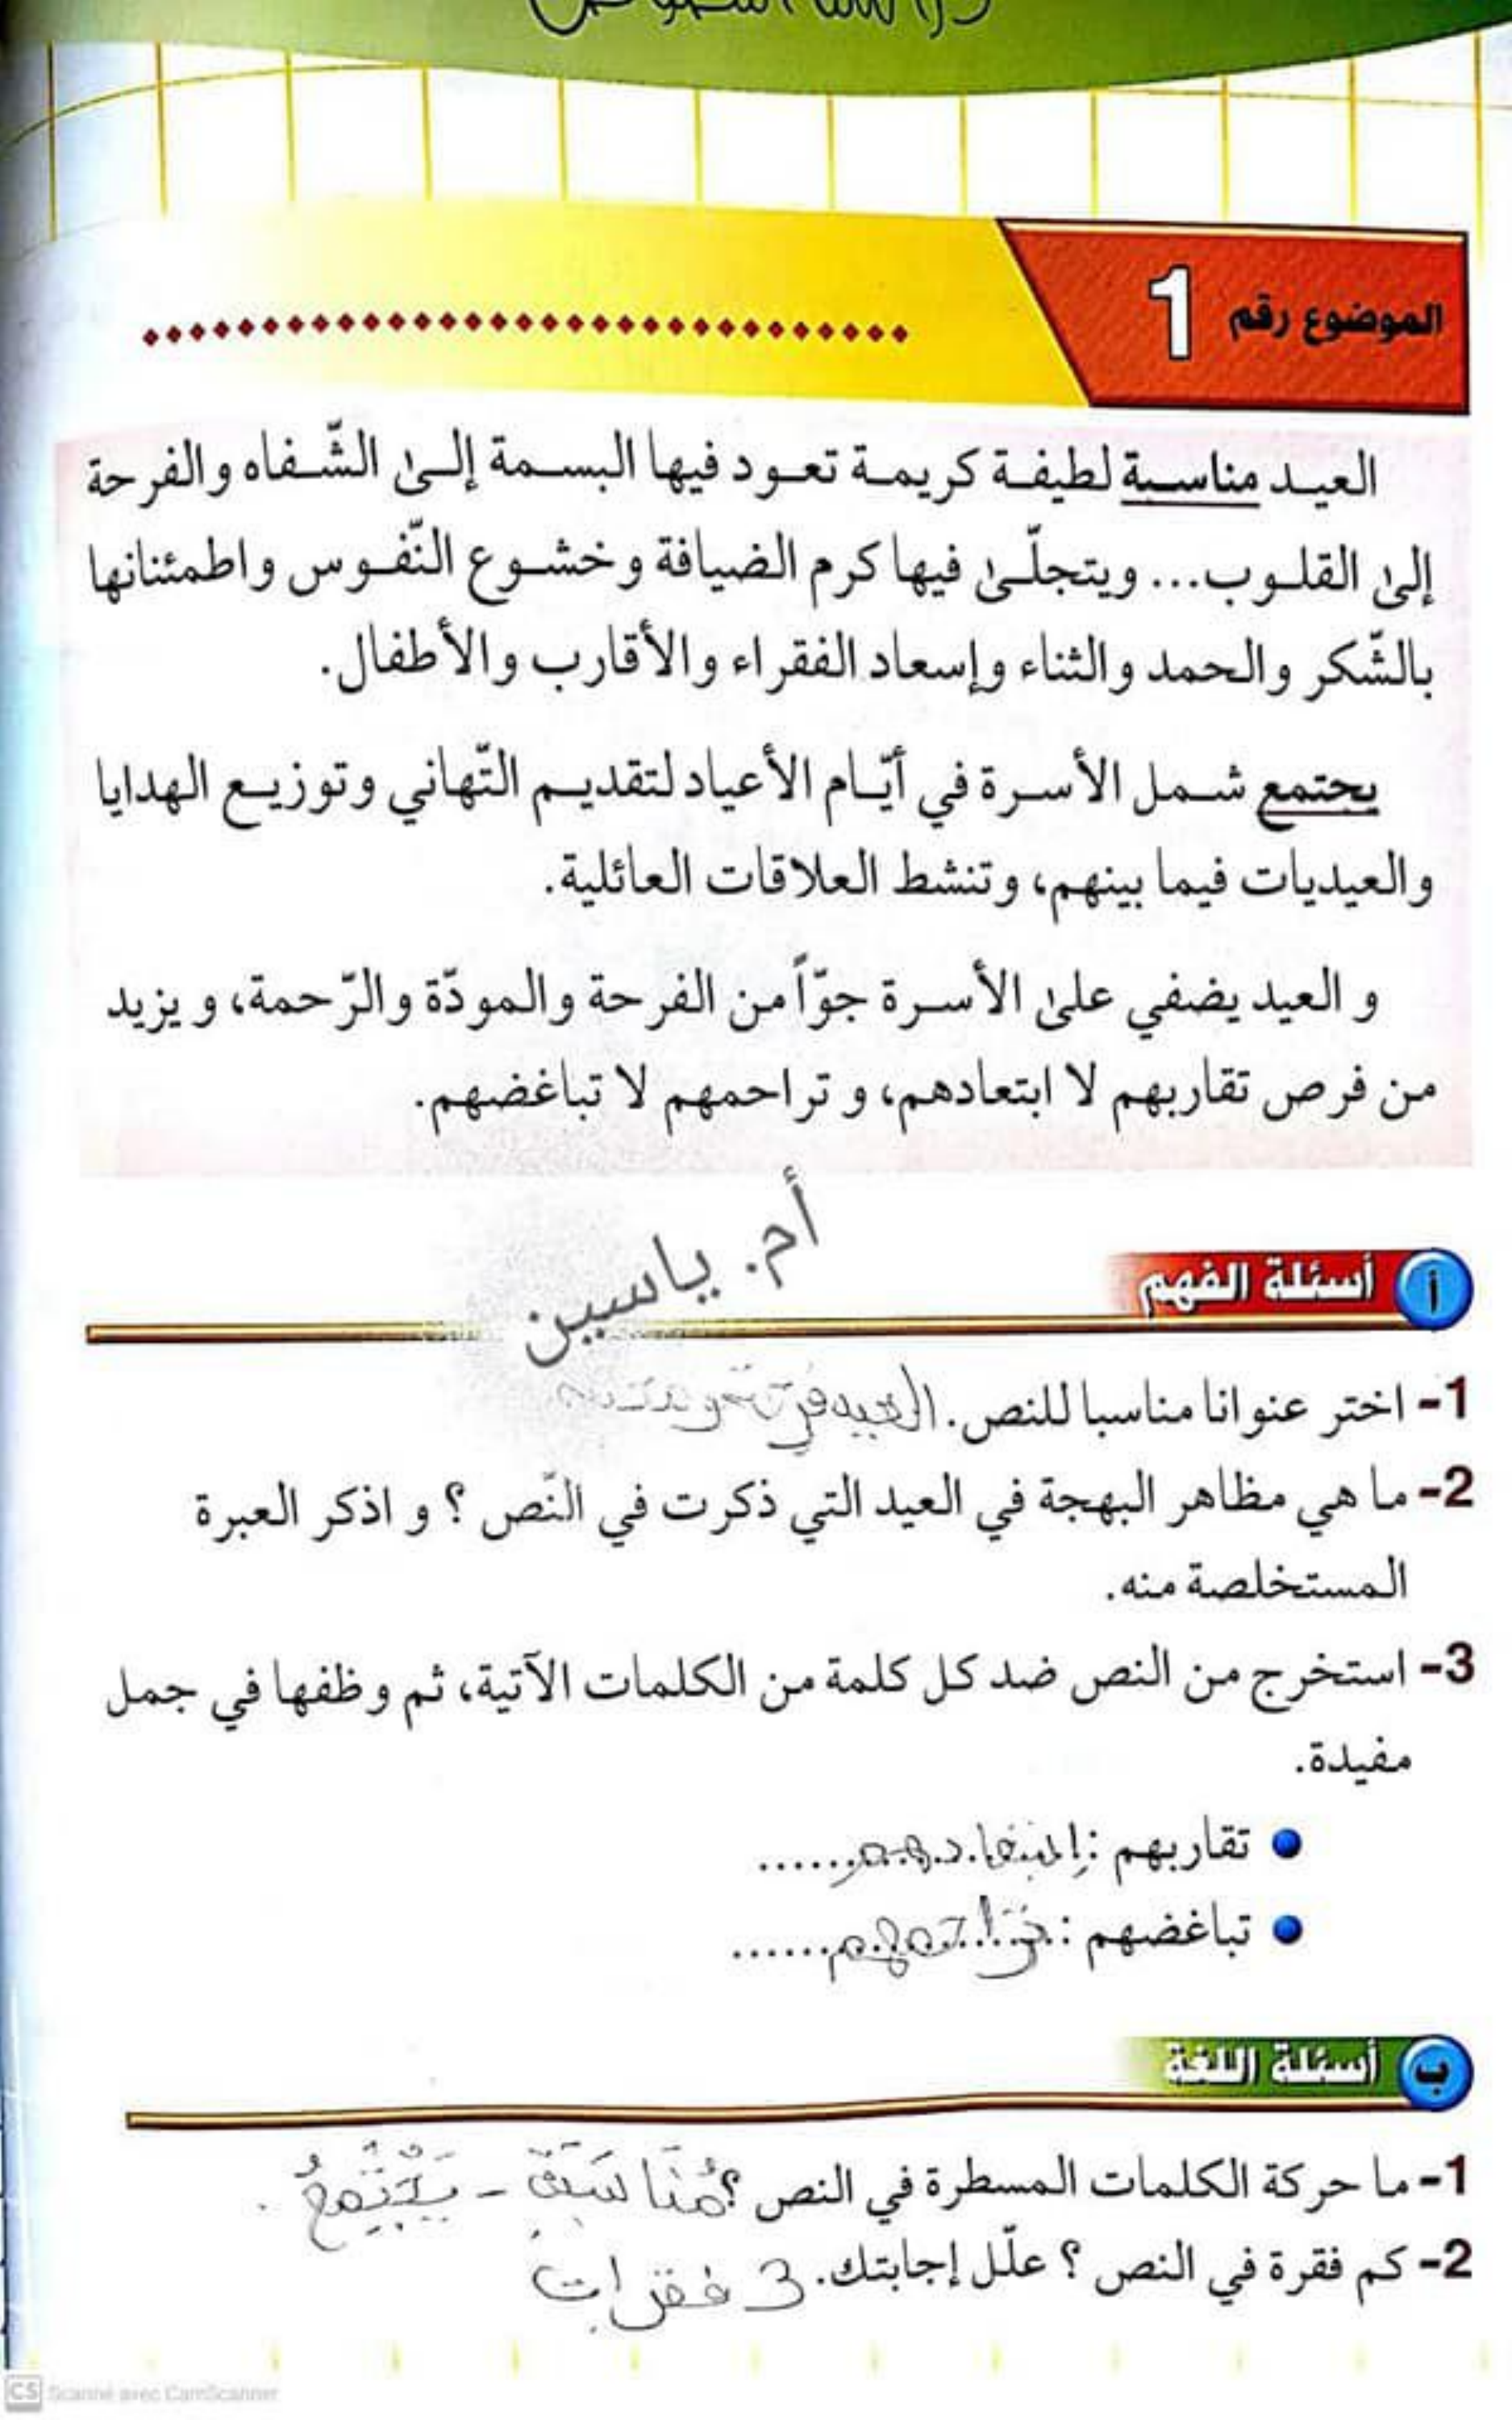 الموضوع رقم 1
العيد مناسبة لطيفة كريمة تعود فيها البسمة إلى الشّفاه والفرحة
إلى القلوب... ويتجلّى فيها كرم الضيافة وخشوع النّفوس واطمئنانها
بالشّكر والحمد والثناء وإسعاد الفقراء والأقارب والأطفال.
يجتمع شمل الأسرة في أيّام الأعياد لتقديم التّهاني وتوزيع الهدايا
والعيديات فيما بينهم، وتنشط العلاقات العائلية.
و العيد يضفي على الأسرة جوّاً من الفرحة والمودّة والرّحمة، ويزيد
من فرص تقاربهم لا ابتعادهم، و تراحمهم لا تباغضهم.
أم. ياسين
أ أسئلة الفهم
1- اختر عنوانا مناسبا للنص. العيد
2- ما هي مظاهر البهجة في العيد التي ذكرت في النّص ؟ و اذكر العبرة
المستخلصة منه.
3- استخرج من النص ضد كل كلمة من الكلمات الآتية، ثم وظفها في جمل
مفيدة.
• تقاربهم : ابتعادهم......
• تباغضهم : تراحمهم......
ب أسئلة اللغة
1- ما حركة الكلمات المسطرة في النص ؟ مُنَاسَبَةٌ - يَجْتَمِعُ .
2- كم فقرة في النص ؟ علّل إجابتك. 3 فقرات
CS Scanné avec CamScanner